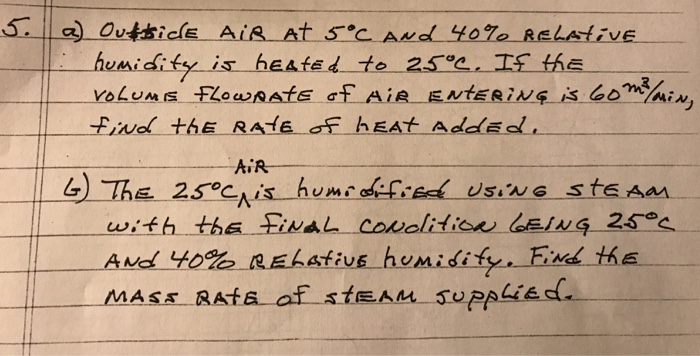 5. a) Outside AiR At 5°C ANd 40% RELAtiVE
humidity is hEAtEd to 25°C. If thE
VOLUME FLOWRATE of AiR ENTERING is 60 m³/miN,
fiNd thE RAtE of hEAt AddEd.
AiR
b) ThE 25°C ^ is humidified USiNG stEAm
with the fiNAL CONdition bEiNG 25°C
ANd 40% RELAtiVE humidity. FiNd thE
MASS RAtE of stEAM suppLiEd.